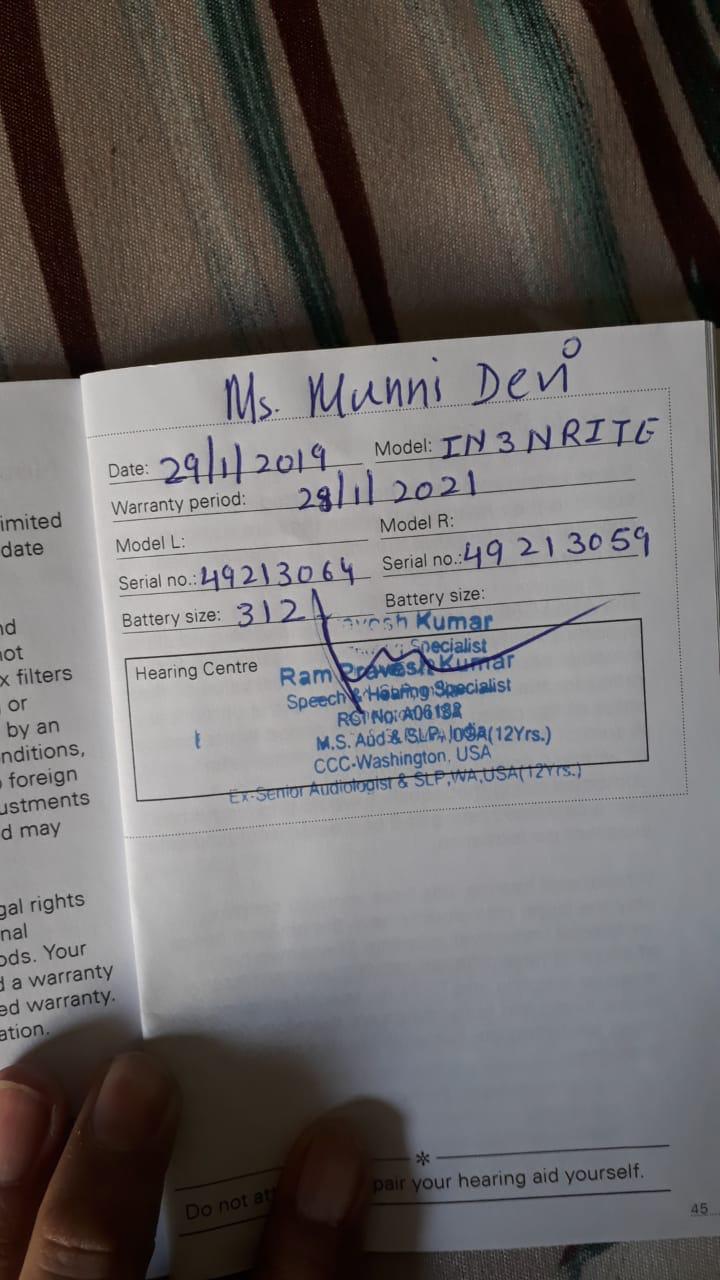 imited
date
nd
not
x filters
or
by an
nditions,
foreign
ustments
d may
gal rights
nal
ods. Your
d a warranty
ed warranty.
ation.
Ms. Munni Devi
Date: 29/1/2019 Model: IN3NRITE
Warranty period: 28/1/2021
Model L: Model R:
Serial no.: 49213064 Serial no.: 49213059
Battery size: 312 Battery size:
Kumar
Specialist
Hearing Centre
Ram Pravesh Kumar
Speech & Hearing Specialist
RCI No: A06182
M.S. Aud & SLP, USA(12Yrs.)
CCC-Washington, USA
Ex-Senior Audiologist & SLP,WA,USA(12Yrs.)
*
Do not at pair your hearing aid yourself.
45